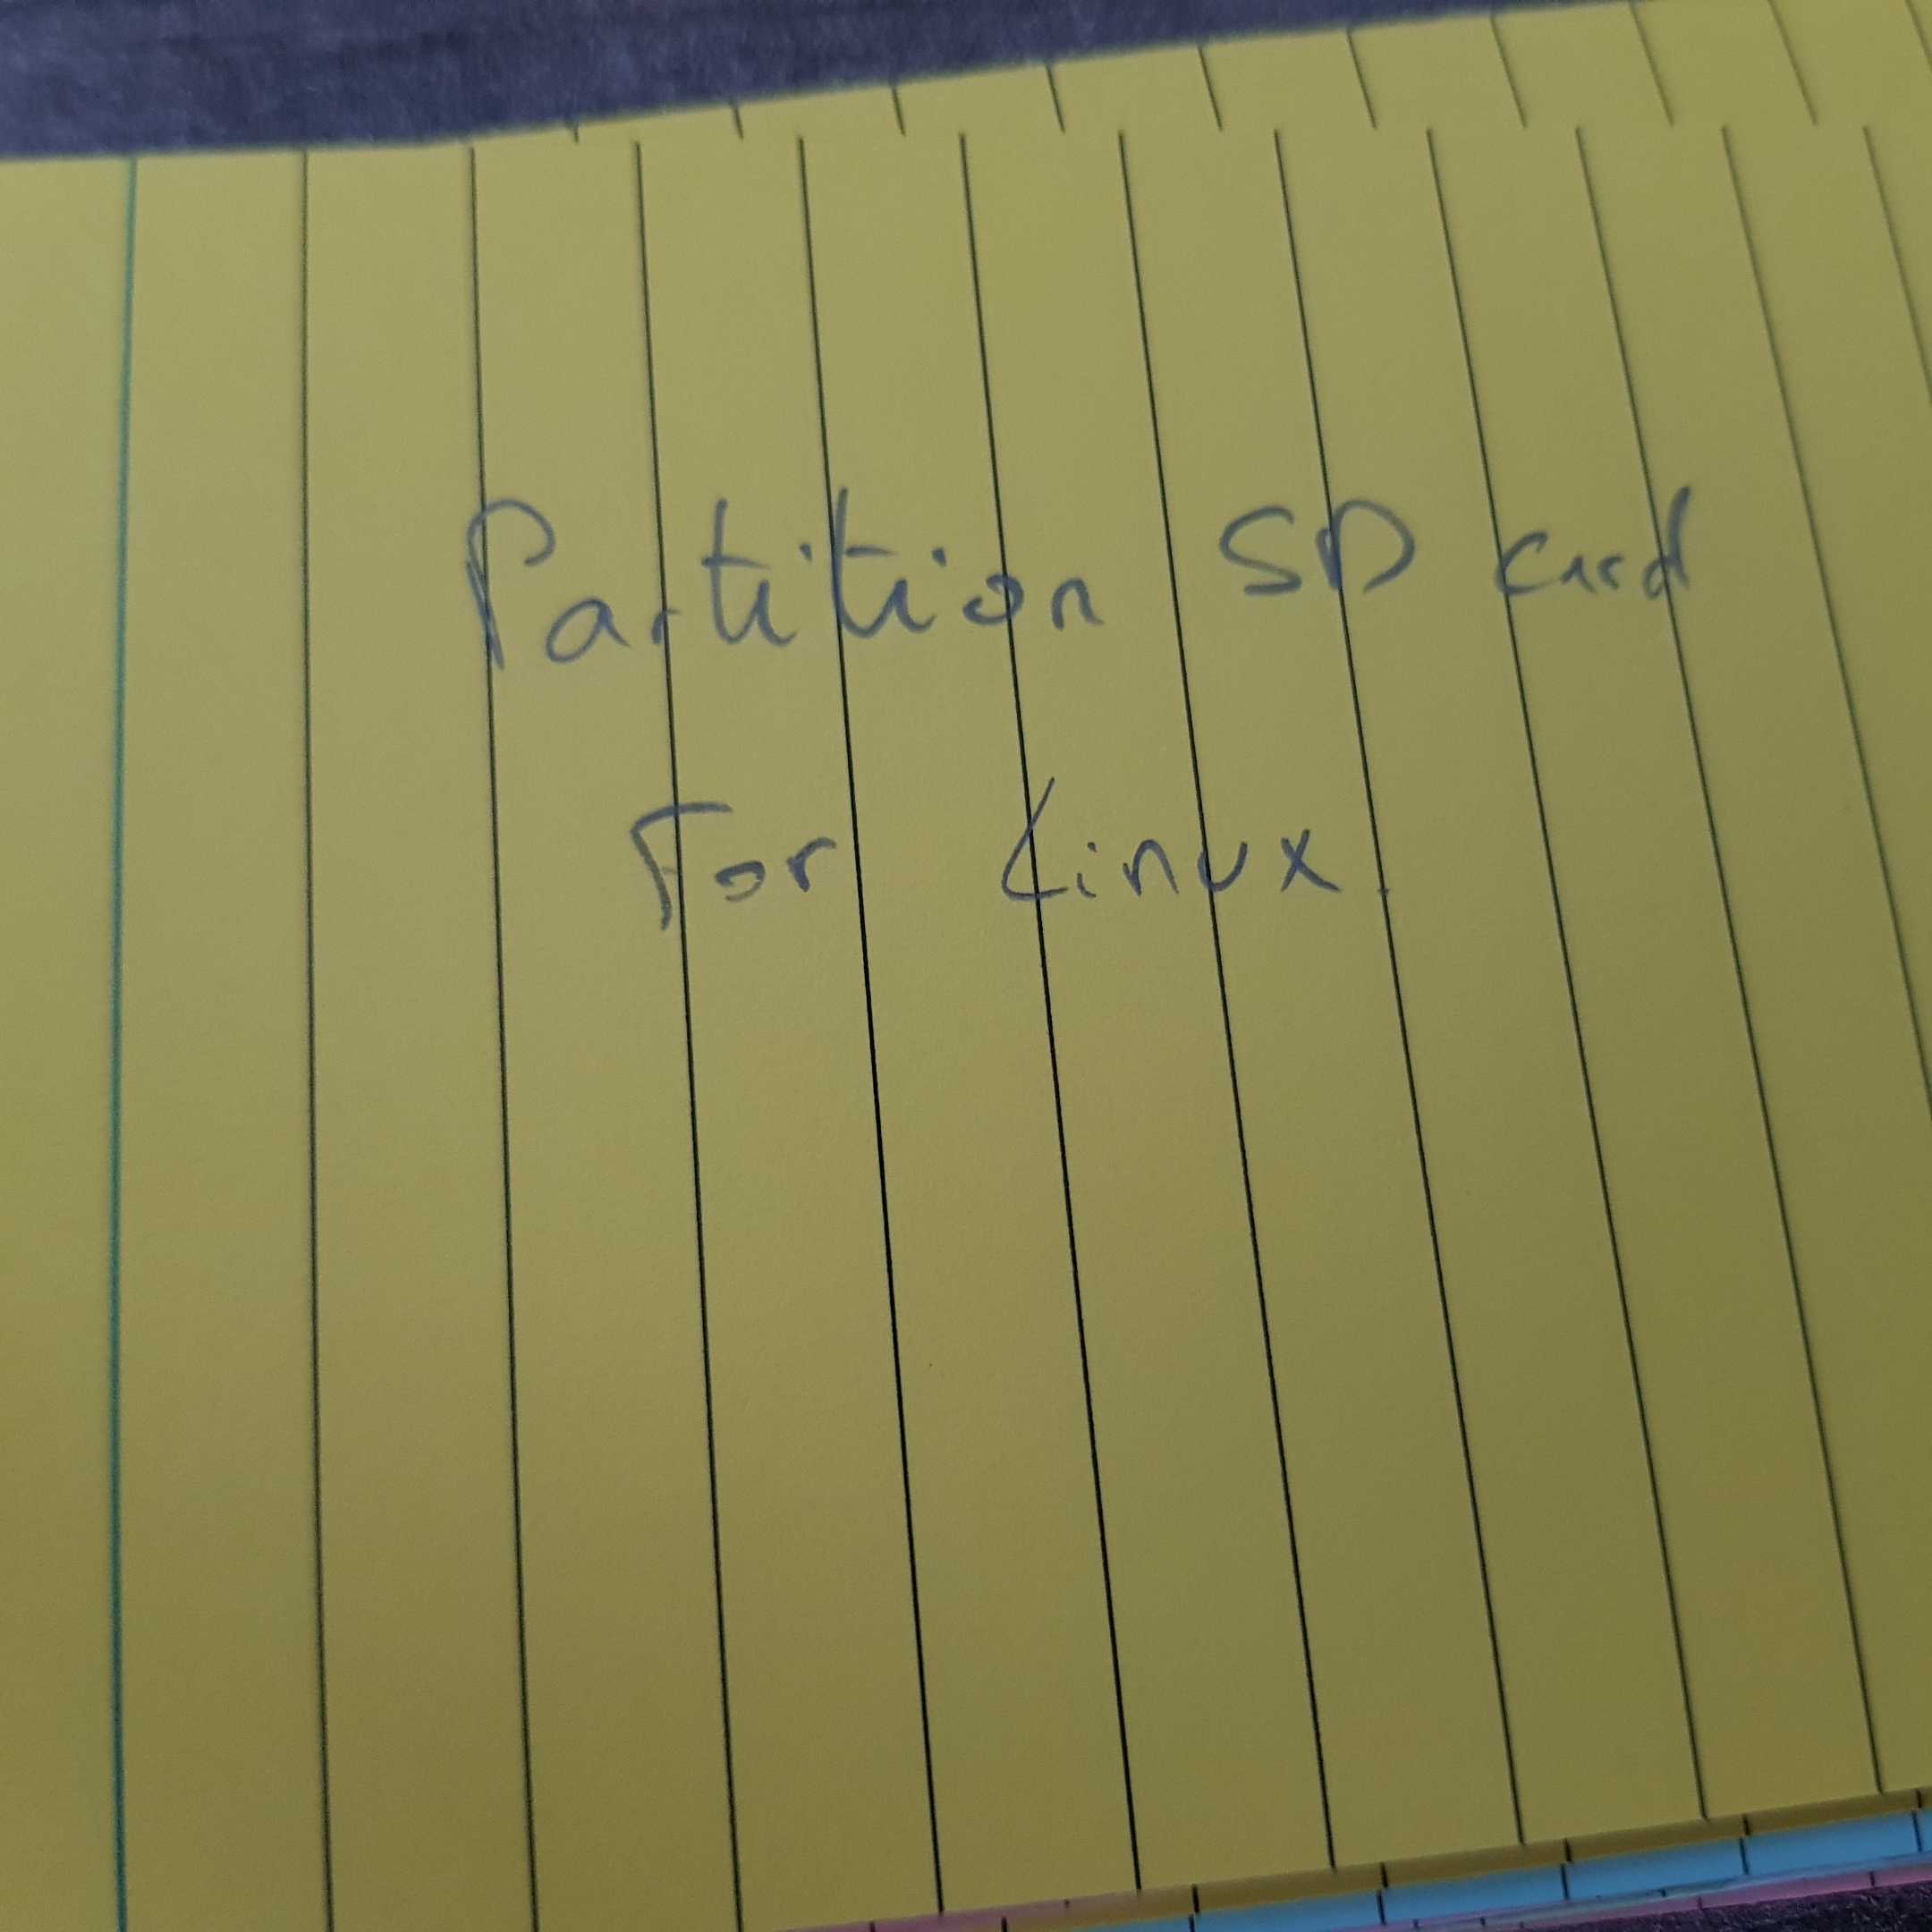 Partition SD card
For Linux.